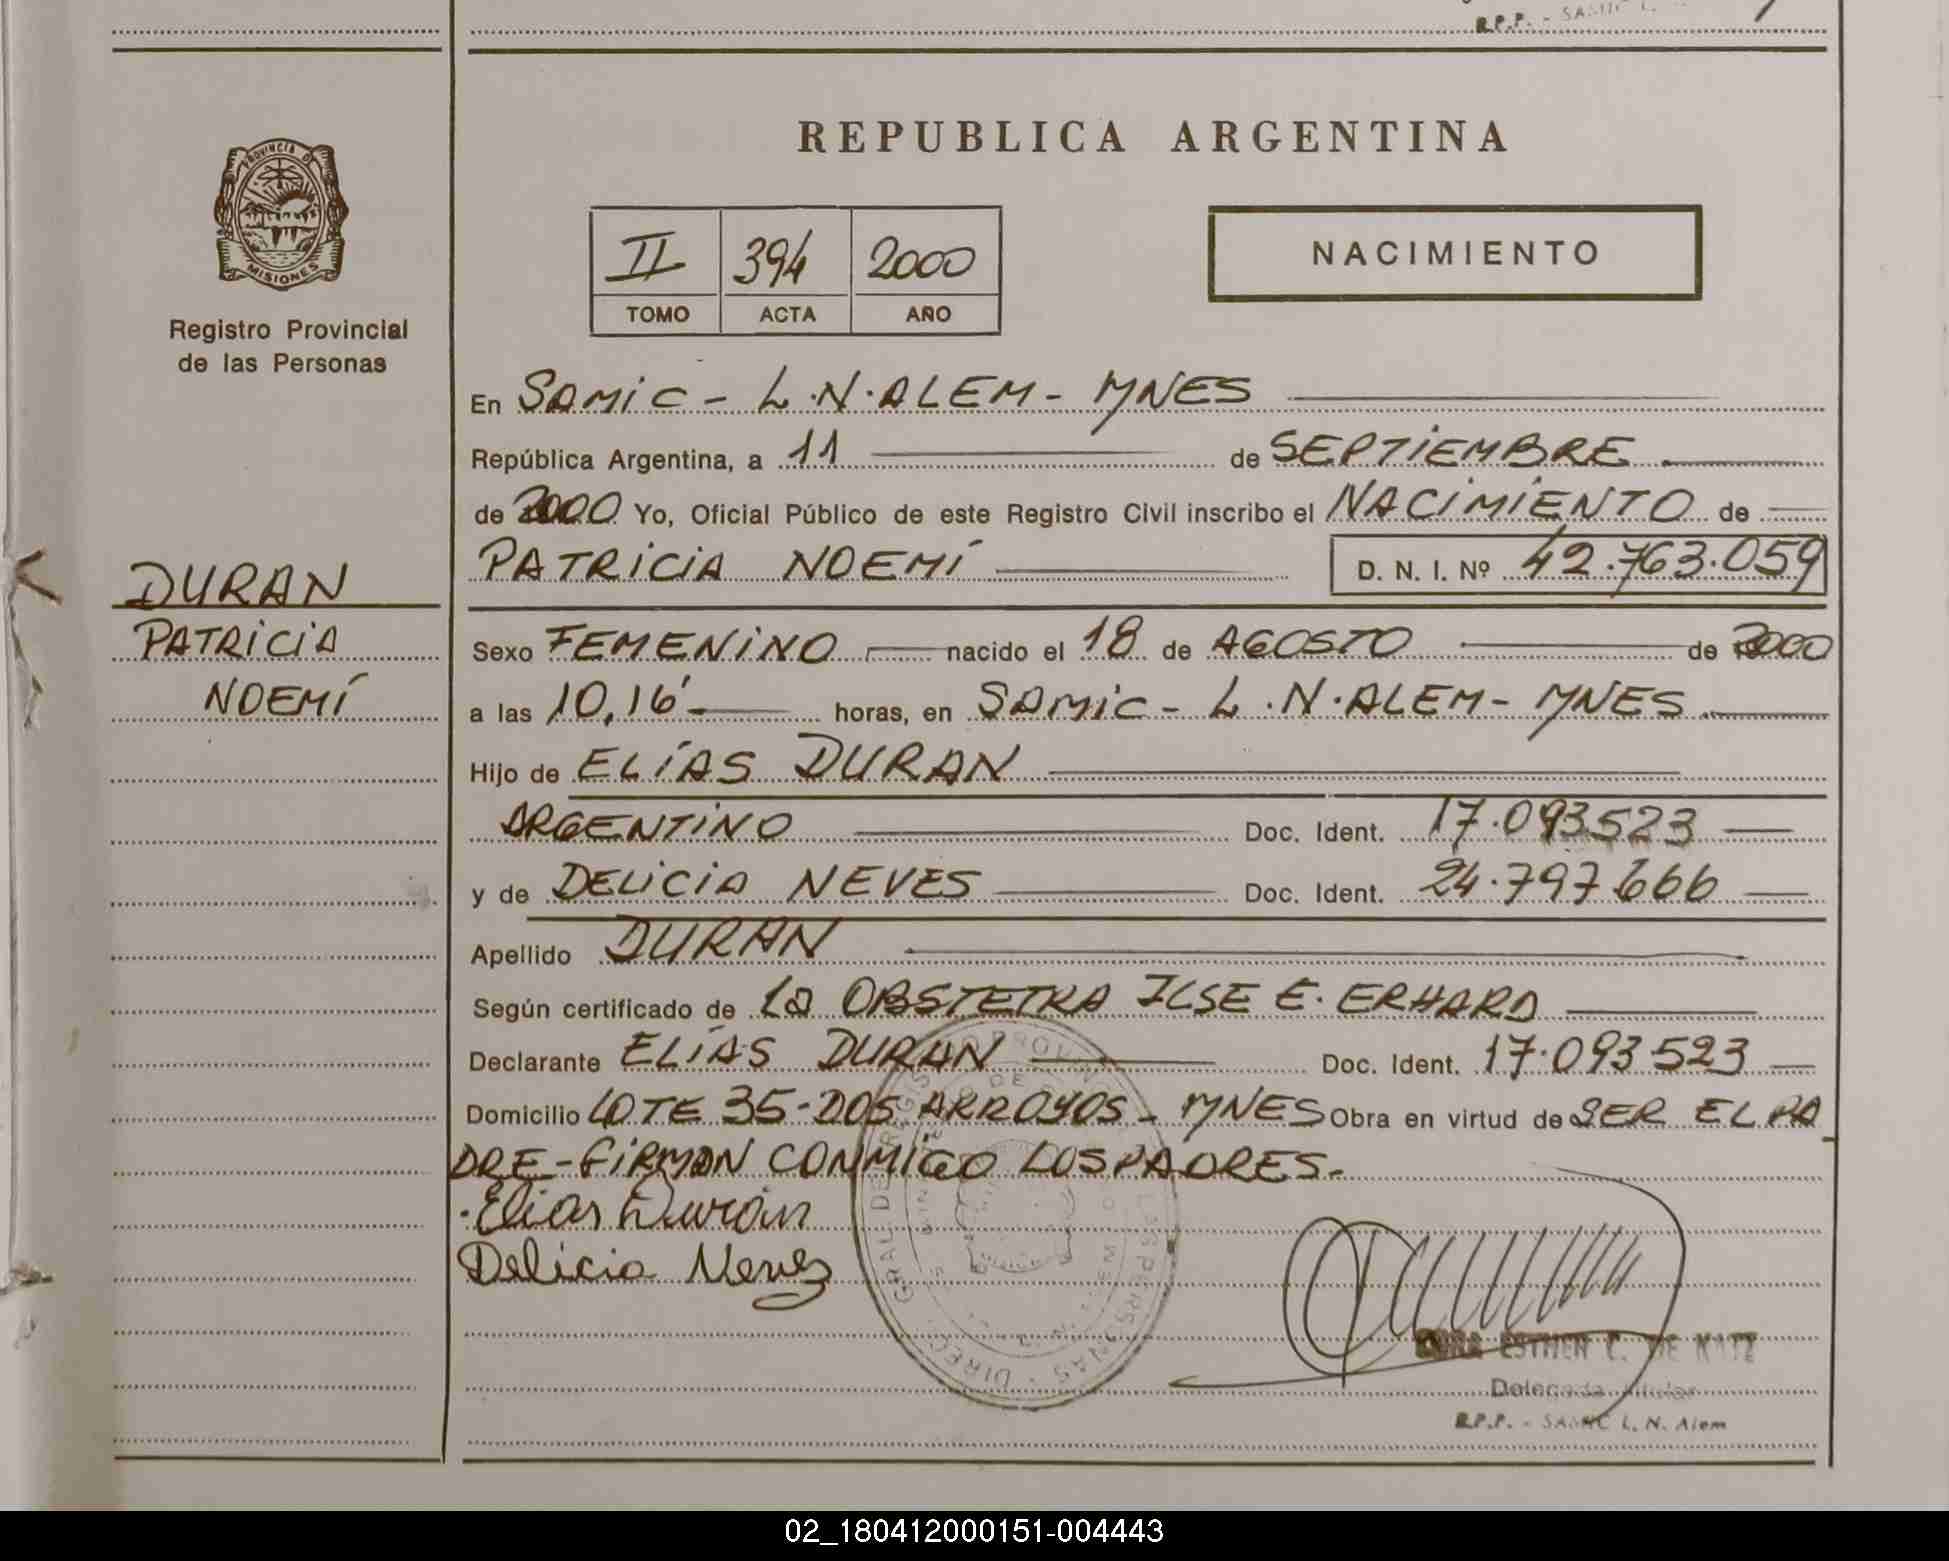 R.P.P. - SAMIC L.
PROVINCIA DE
MISIONES
Registro Provincial
de las Personas
DURAN
PATRICIA
NOEMÍ
REPUBLICA ARGENTINA
II 394 2000
TOMO ACTA AÑO
NACIMIENTO
En SAMIC - L.N.ALEM - MNES
República Argentina, a 11 de SEPTIEMBRE
de 2000 Yo, Oficial Público de este Registro Civil inscribo el NACIMIENTO de
PATRICIA NOEMÍ D. N. I. Nº 42.763.059
Sexo FEMENINO nacido el 18 de AGOSTO de 2000
a las 10,16' horas, en SAMIC - L.N.ALEM - MNES
Hijo de ELÍAS DURAN
ARGENTINO Doc. Ident. 17.093.523
y de DELICIA NEVES Doc. Ident. 24.797.666
Apellido DURAN
Según certificado de LA OBSTETRA ILSE E. ERHARD
Declarante ELÍAS DURAN Doc. Ident. 17.093.523
Domicilio LOTE 35 - DOS ARROYOS - MNES Obra en virtud de SER EL PA
DRE - FIRMAN CONMIGO LOS PADRES.
Elias Durán
Delicia Nevez
ESTHER C. DE KATZ
Delegada Titular
R.P.P. - SAMIC L. N. Alem
02_180412000151-004443